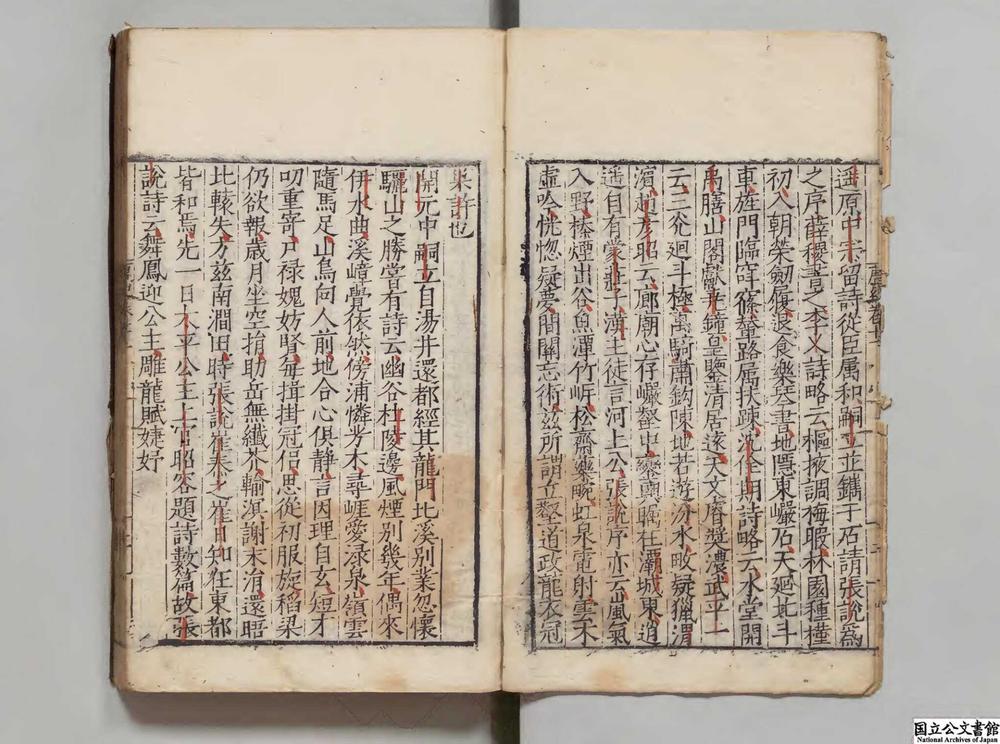 遥原中宗留詩從臣属和嗣立並鐫于石請張說爲
之序薛稷書之李乂詩略云樞掖調梅暇林園種槿
初入朝榮劒履退食樂琴書地隱東巖石天廻北斗
車旌門臨窅窱輦路属扶踈沈佺期詩略云水堂開
禹膳山閣獻堯鐘皇鑒清居遠天文睿奬濃武平一
云三光廻斗極萬騎肅鈎陳地若遊汾水畋疑獵渭
濵趙彦昭云廊廟心存巖壑中鑾輿矚在灞城東逍
遥自有蒙莊子漢主徒言河上公張說序亦云嵐氣
入野榛煙出谷魚潭竹岍松齋藥畹虹泉電射雲木
虛吟恍惚疑夢間關忘術茲所謂丘壑龍衣冠
巢許也
開元中嗣立自湯井還都經其龍門北溪別業忽懷
驪山之勝嘗有詩云幽谷杜陵邊風煙別幾年偶來
伊水曲溪嶂覺依然傍浦憐芳木尋崖愛淥泉嶺雲
隨馬足山鳥向人前地合心俱静言因理自玄短才
叨重寄尸禄媿妨賢每揖掛冠侣思從初服旋稻粱
仍欲報歲月坐空捐助岳無纖芥輸溟謝末涓還晤
比轅失方茲南澗田時張說崔泰之崔日知在東都
皆和焉先一日太平公主上官昭容題詩數篇故張
說詩云舞鳳迎公主雕龍賦婕妤
国立公文書館
National Archives of Japan